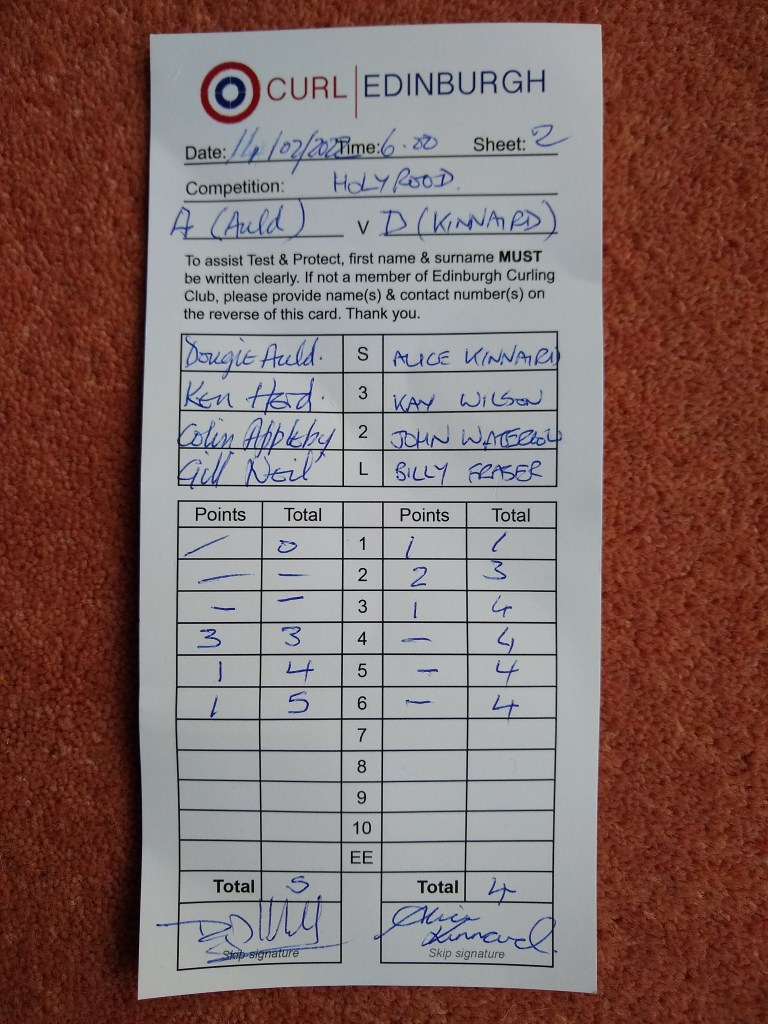 CURL | EDINBURGH
Date: 14/02/2022 Time: 6.00 Sheet: 2
Competition: HOLYROOD.
A (Auld) v D (KINNAIRD)
To assist Test & Protect, first name & surname MUST
be written clearly. If not a member of Edinburgh Curling
Club, please provide name(s) & contact number(s) on
the reverse of this card. Thank you.
Dougie Auld. S ALICE KINNAIRD
Ken Herd. 3 KAY WILSON
Colin Appleby 2 JOHN
Gill Neil L BILLY FRASER
Points Total Points Total
/ 0 1 1 1
— — 2 2 3
– – 3 1 4
3 3 4 – 4
1 4 5 – 4
1 5 6 – 4
7
8
9
10
EE
Total 5 Total 4
Alice
Kinnaird
Skip signature Skip signature